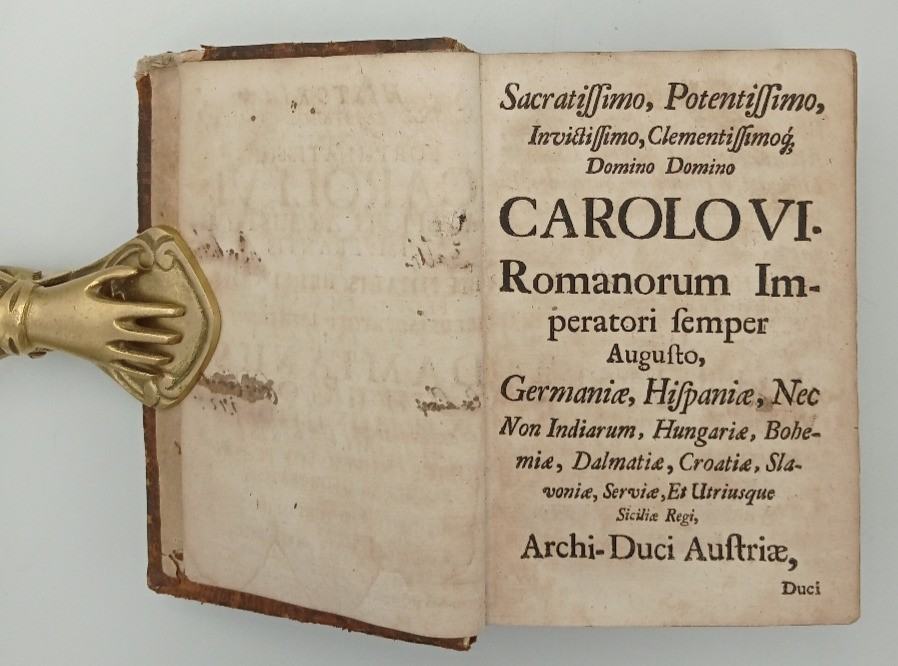 Sacratiſſimo, Potentiſſimo,
Invictiſſimo, Clementiſſimoq́;
Domino Domino
CAROLO VI.
Romanorum Im-
peratori ſemper
Auguſto,
Germaniæ, Hiſpaniæ, Nec
Non Indiarum, Hungariæ, Bohe-
miæ, Dalmatiæ, Croatiæ, Sla-
voniæ, Serviæ, Et Utriusque
Siciliæ Regi,
Archi-Duci Auſtriæ,
Duci